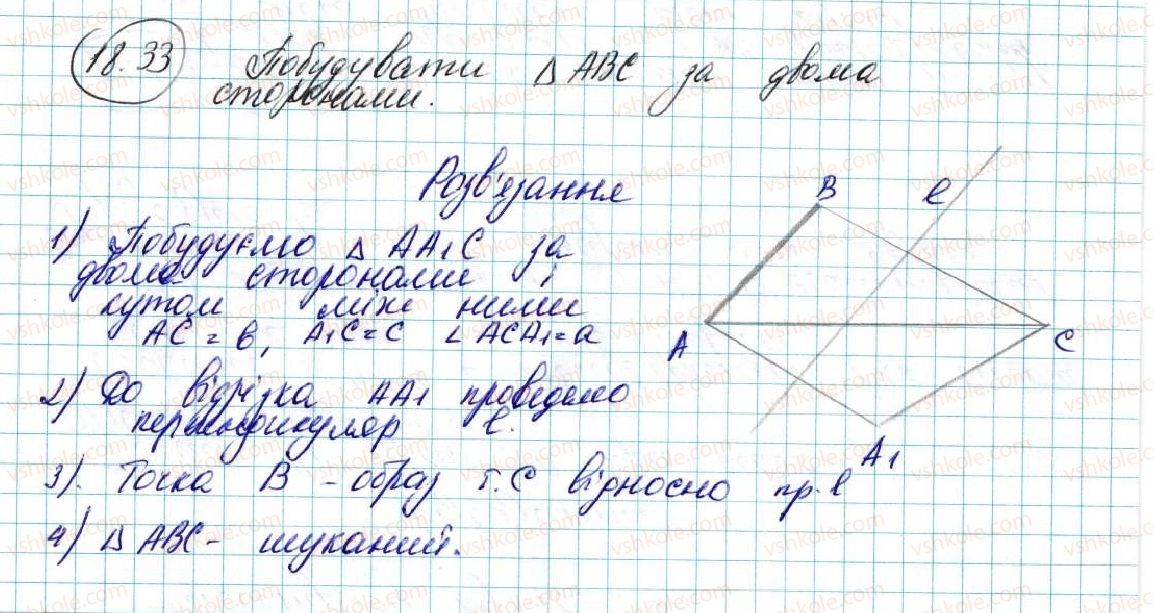 18.33 Побудувати △ ABC за двома
сторонами.
Розв'язання
1) Побудуємо △ AA₁C за
двома сторонами і
кутом між ними
AC = в, A₁C = C ∠ACA₁ = a
2) До відрізка AA₁ проведемо
перпендикуляр l.
3). Точка B - образ т. C відносно пр. l
4) △ ABC - шуканий.
B
l
A
C
A₁